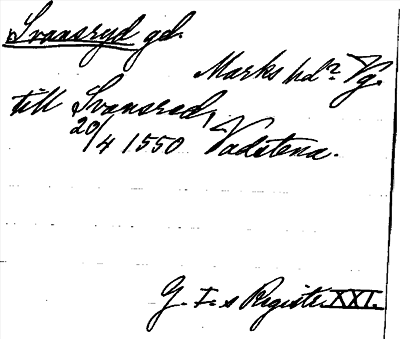 Svansryd gd.
Marks hd. Vg.
till Svansred,
20/4 1550 Vadstena.
G. I.s Registr. XXI.